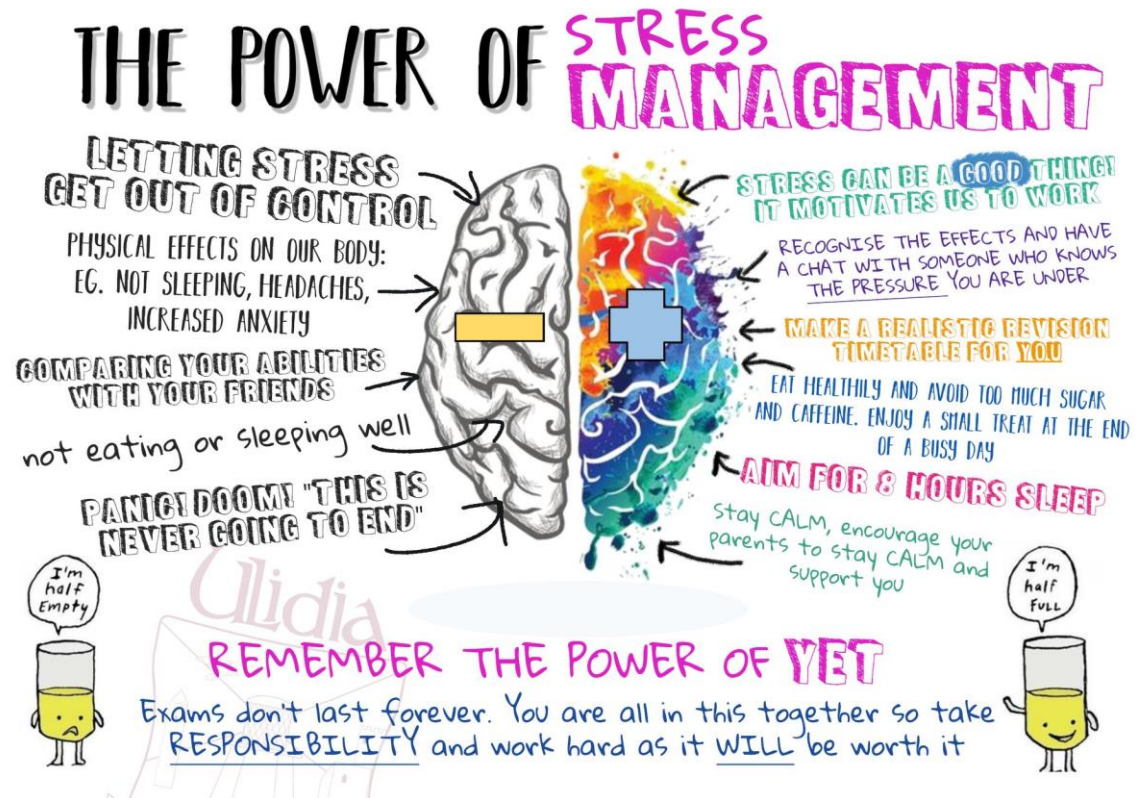 THE POWER OF STRESS
MANAGEMENT
LETTING STRESS
GET OUT OF CONTROL
PHYSICAL EFFECTS ON OUR BODY:
EG. NOT SLEEPING, HEADACHES,
INCREASED ANXIETY
COMPARING YOUR ABILITIES
WITH YOUR FRIENDS
not eating or sleeping well
PANIC! DOOM! "THIS IS
NEVER GOING TO END"
STRESS CAN BE A GOOD THING!
IT MOTIVATES US TO WORK
RECOGNISE THE EFFECTS AND HAVE
A CHAT WITH SOMEONE WHO KNOWS
THE PRESSURE YOU ARE UNDER
MAKE A REALISTIC REVISION
TIMETABLE FOR YOU
EAT HEALTHILY AND AVOID TOO MUCH SUGAR
AND CAFFEINE. ENJOY A SMALL TREAT AT THE END
OF A BUSY DAY
AIM FOR 8 HOURS SLEEP
stay CALM, encourage your
parents to stay CALM and
support you
I'm
half
Empty
Ulidia
I'm
half
FULL
REMEMBER THE POWER OF YET
Exams don't last forever. You are all in this together so take
RESPONSIBILITY and work hard as it WILL be worth it